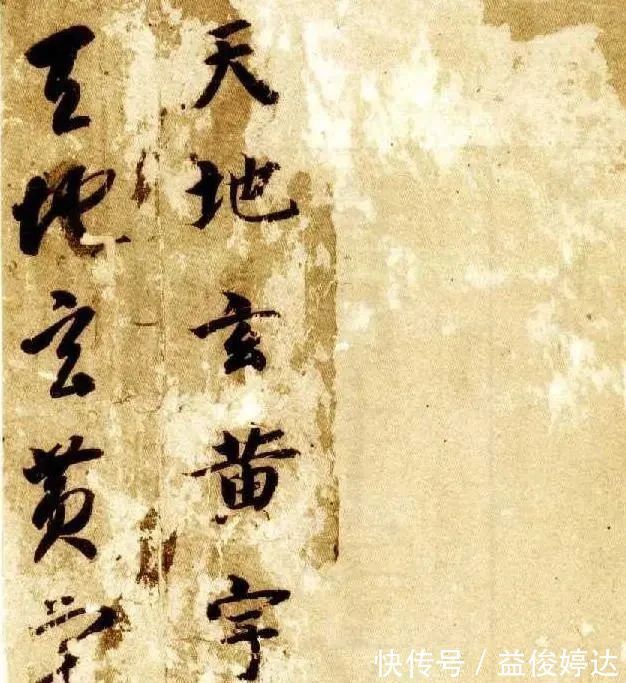 天地玄黄宇
天地玄黄宇
快传号 / 益俊婷达